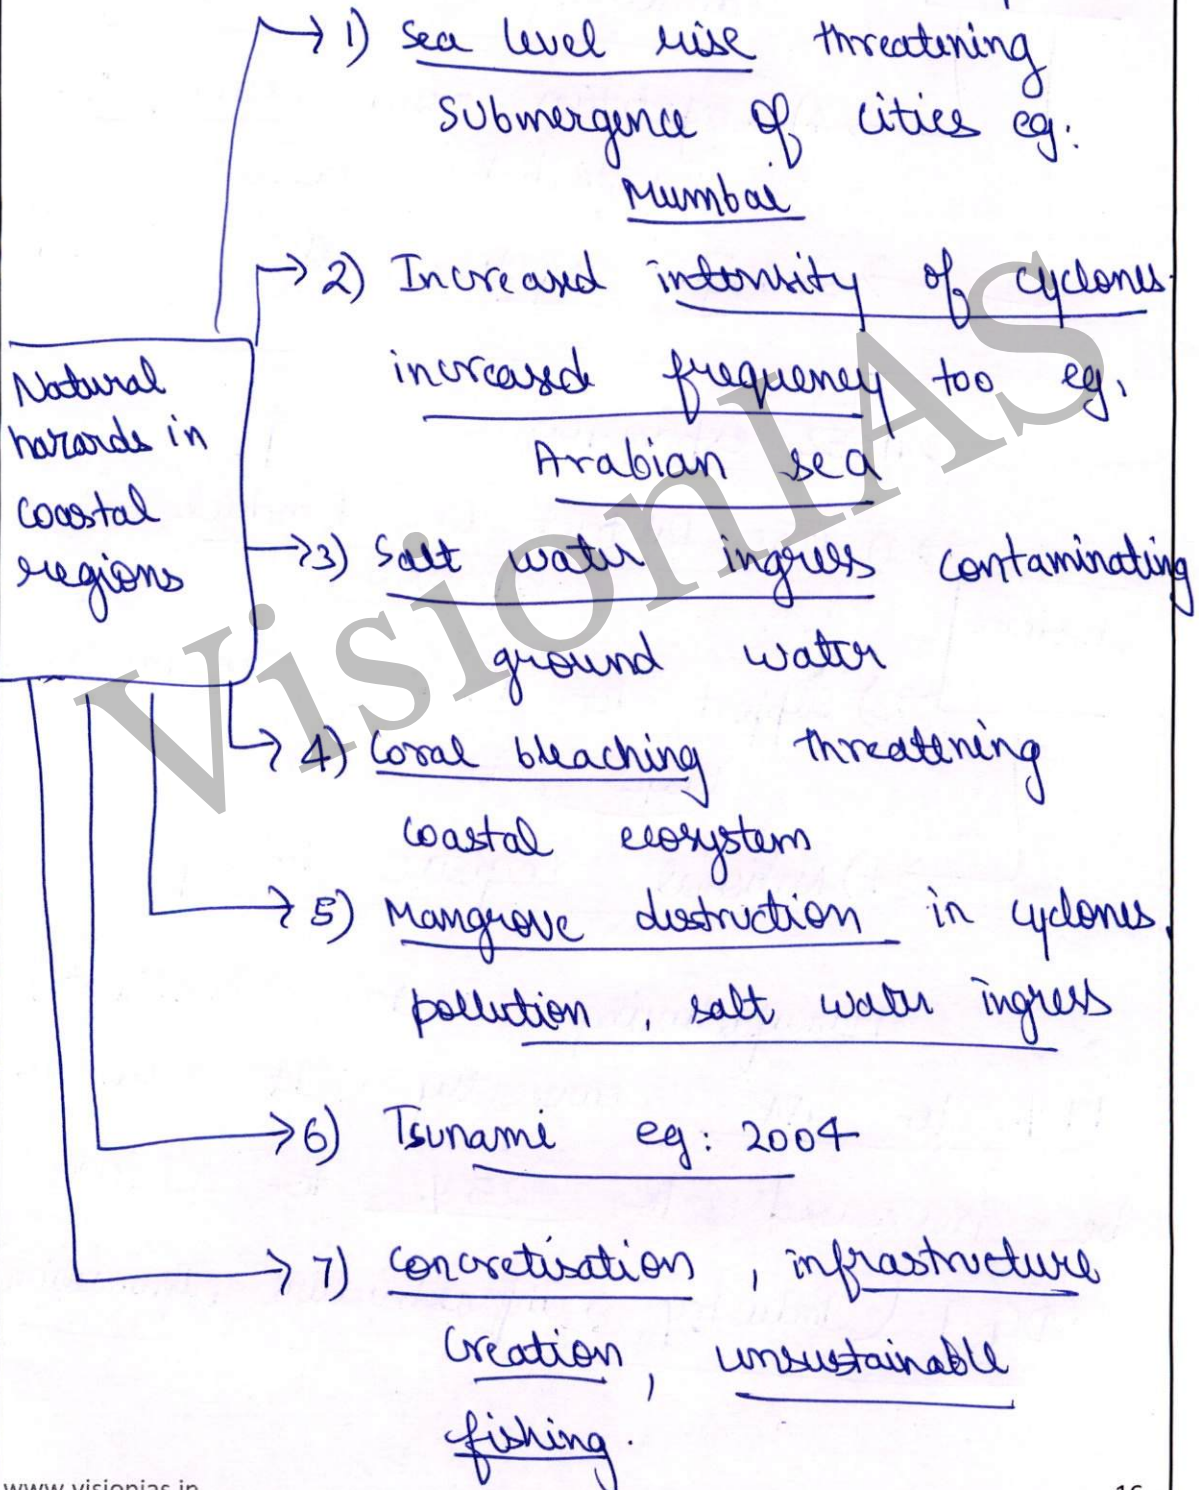 1) Sea level rise threatening
submergence of cities eg:
Mumbai
2) Increased intensity of cyclones.
increased frequency too eg.
Arabian sea
Natural
hazards in
coastal
regions
3) Salt water ingress contaminating
ground water
4) Coral bleaching threatening
coastal ecosystem
5) Mangrove destruction in cyclones,
pollution, salt water ingress
6) Tsunami eg: 2004
7) Concretisation, infrastructure
creation, unsustainable
fishing.
VisionIAS
www.visionias.in